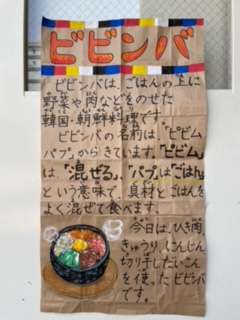 ビビンバ
ビビンバは、ごはんの上に
野菜や肉などをのせた
韓国・朝鮮料理です。
ビビンバの名前は、「ピビム
パプ」からきています。「ピビム」
は、「混ぜる」、「パプ」は「ごはん」
という意味で、具材とごはんを
よく混ぜて食べます。
今日は、ひき肉
きゅうり、にんじん
切り干しだいこん
を使ったビビンバ
です。